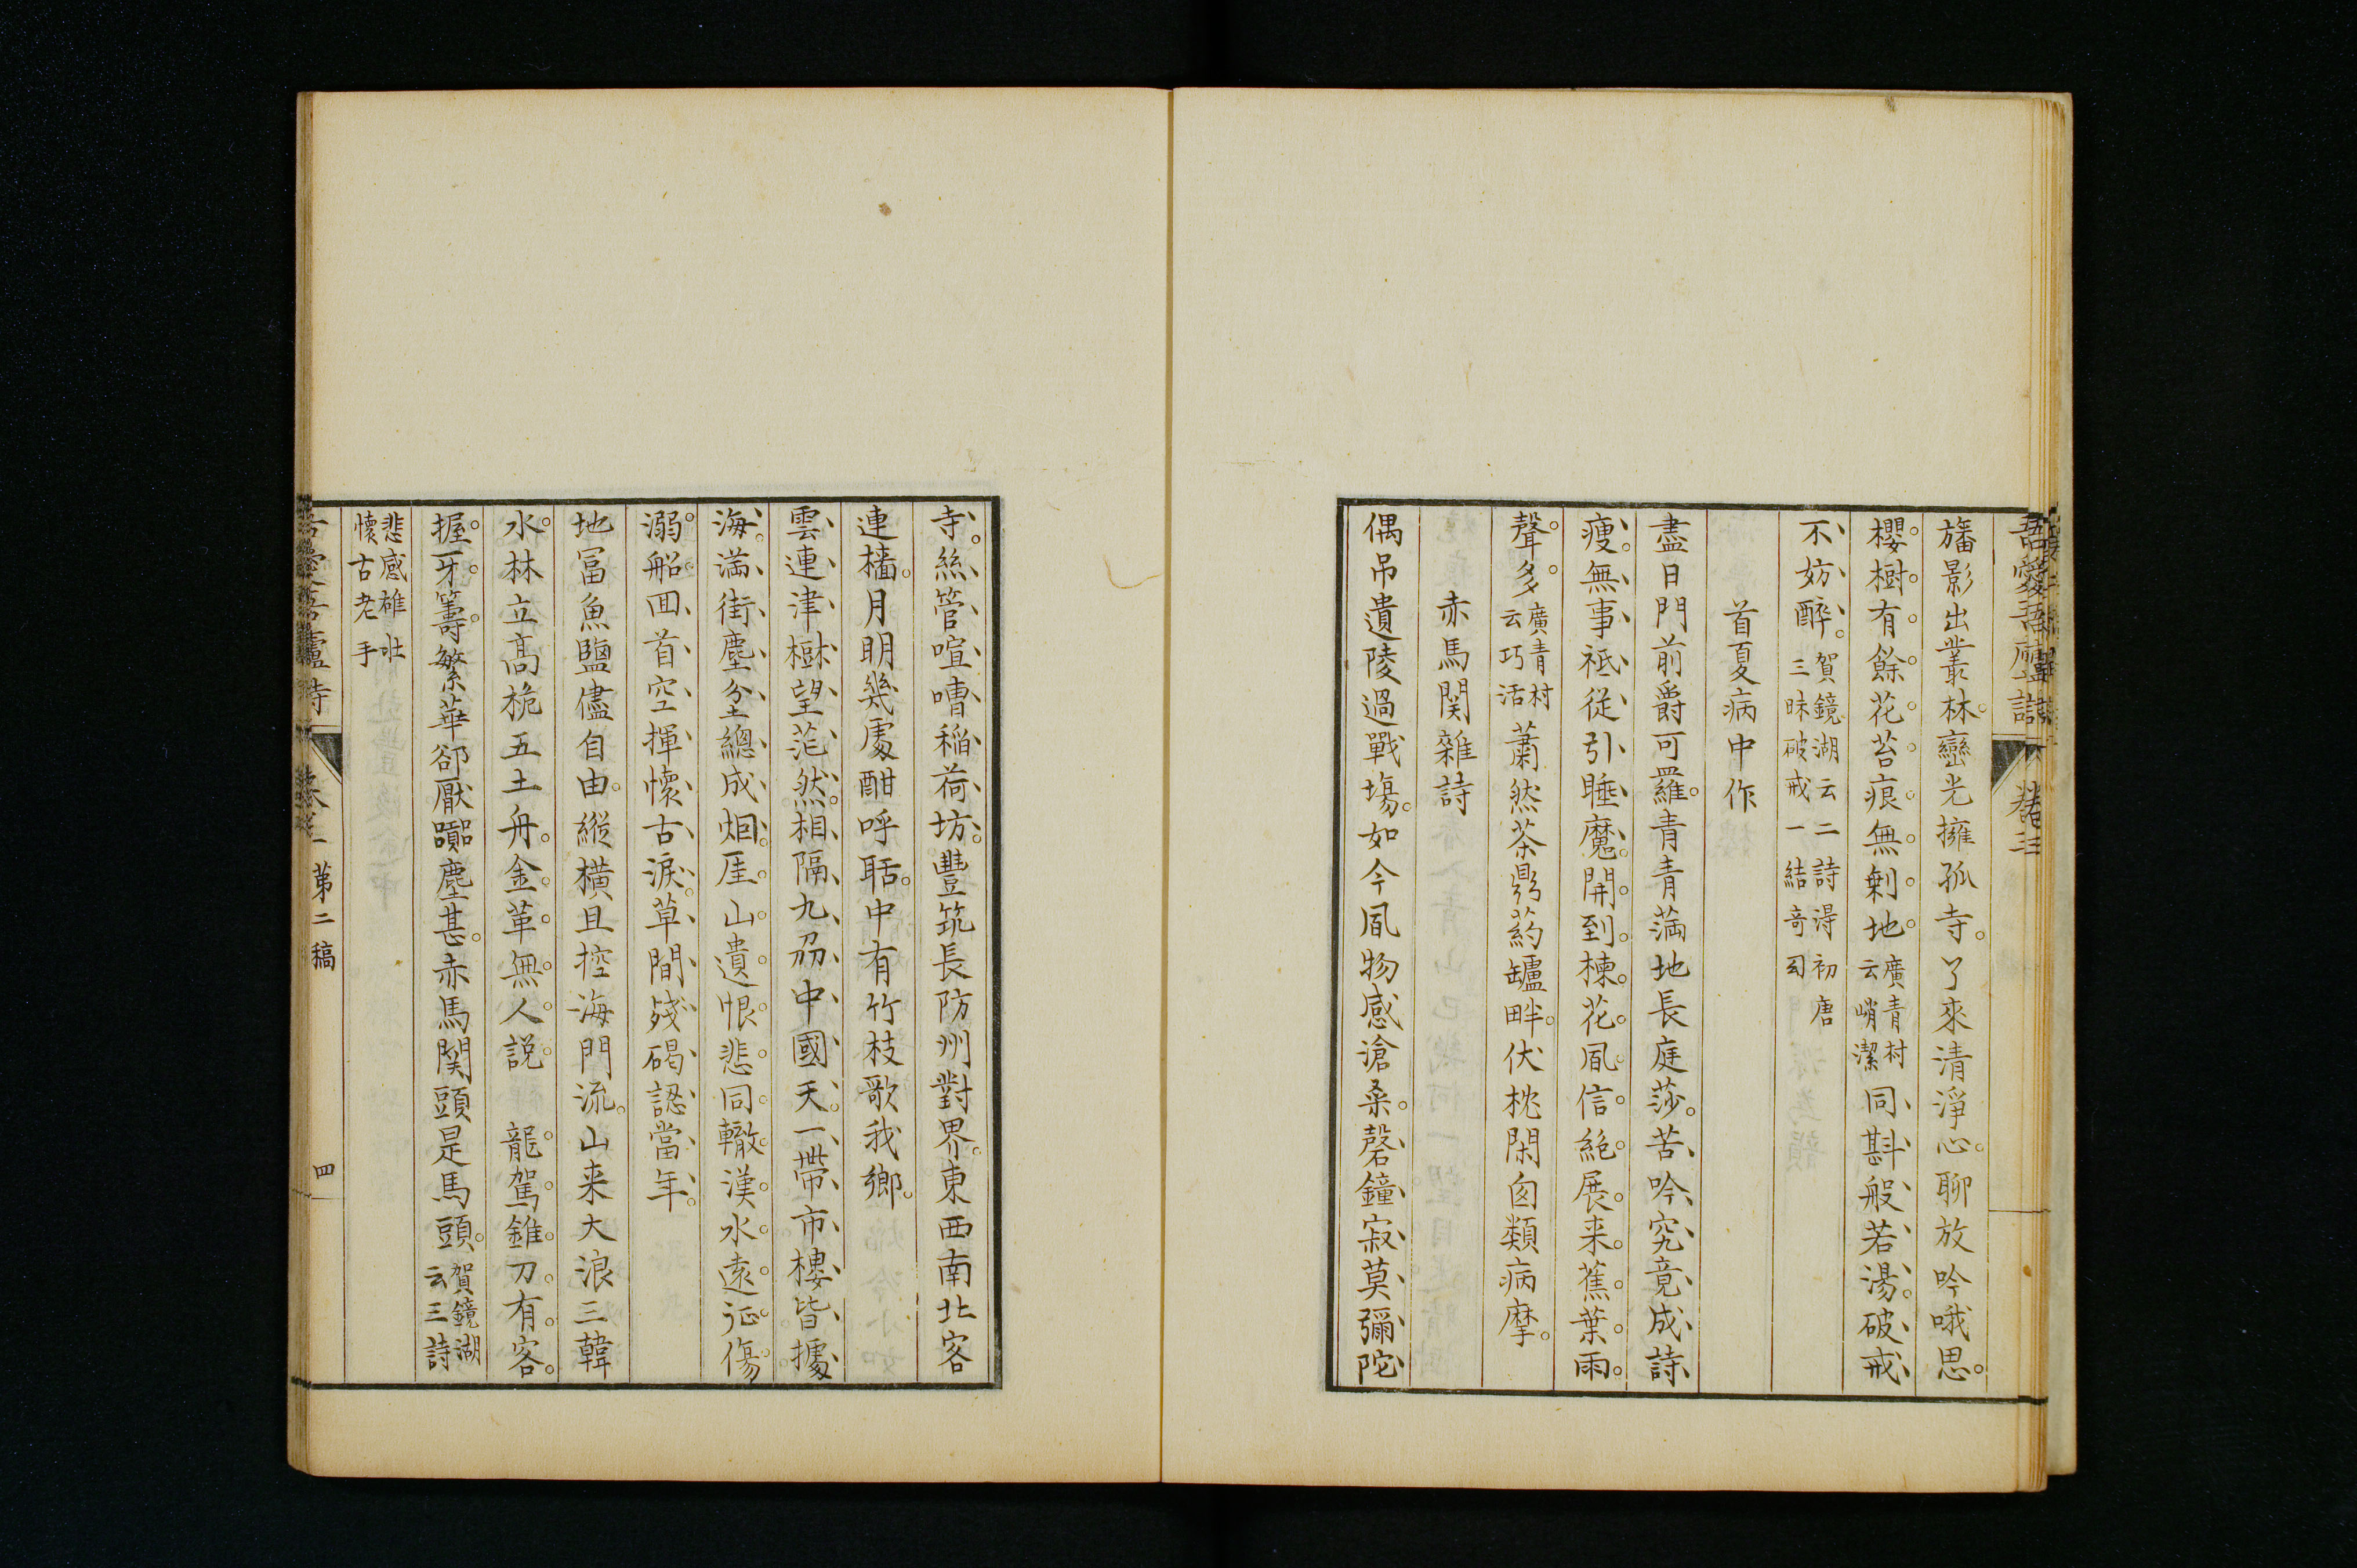 吾愛吾廬詩 卷三
旛影出叢林。巒光擁孤寺。了來清淨心。聊放吟哦思。
櫻樹有餘花。苔痕無剩地。廣青村云峭潔同斟般若湯。破戒
不妨醉。賀鏡湖云二詩淂初唐三昧破戒一結奇図
首夏病中作
盡日門前爵可羅。青青滿地長庭莎。苦吟究竟成詩
瘦。無事祇從引睡魔。開到楝花風信絶。展来蕉葉雨
聲多。廣青村云巧活蕭然茶鼎葯罏畔。伏枕閑函類病摩。
赤馬関雜詩
偶吊遺陵過戰塲。如今風物感滄桑。磬鐘寂莫彌陀
寺。絲管喧嘈稲荷坊。豐筑長防州對界。東西南北客
連檣。月明幾處酣呼聒。中有竹枝歌我鄉。
雲連津樹望茫然。相隔九刕中國天。一帶市樓皆據
海。滿街塵坌總成烟。厓山遺恨悲同轍。漢水遠征傷
溺船。回首空揮懷古淚。草間殘碣認當年。
地富魚鹽儘自由。縱橫且控海門流。山来大浪三韓
水。林立高桅五土舟。金革無人説 龍駕。錐刀有客
握牙籌。繁華卻厭嚻塵甚。赤馬関頭是馬頭。賀鏡湖云三詩
悲感雄壯懷古老手
吾愛吾廬詩 第二稿 四